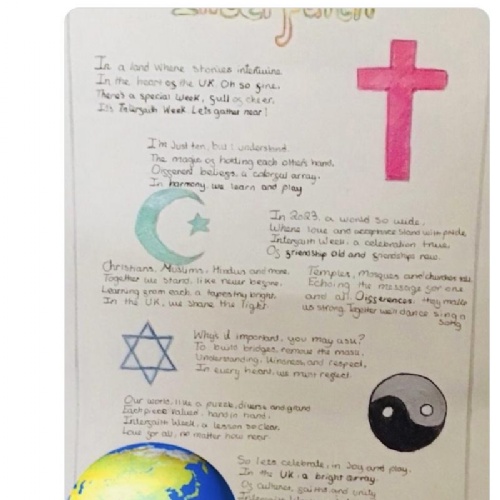 Interfaith
In a land where stories intertwine
In the heart of the UK. Oh so fine.
There's a special week, full of cheer.
It's Interfaith Week Lets gather near!
I'm Just ten, but I understand.
The magic of holding each other's hand.
Different beliefs, a colorful array.
In harmony we learn and play
In 2023, a world so wide.
Where love and acceptance stand with pride
Interfaith Week, a celebration true.
Of friendship old and friendships new.
Christians, Muslims, Hindus and more.
Together we stand, like never before.
Learning from each a tapestry bright.
In the UK, we share the light.
Temples, Mosques and churches
Echoing the message for one
and all. Differences. they make
us strong. Together we'll dance sing a
song
Why's it important, you may ask?
To build bridges, remove the mask.
Understanding, kindness, and respect.
In every heart, we must reflect.
Our world, like a puzzle, diverse and grand
Each piece valued, hand in hand.
Interfaith Week, a lesson so clear.
Love for all, no matter how near.
So lets celebrate, in Joy and play.
In the UK, a bright array.
Of cultures, faiths and unity